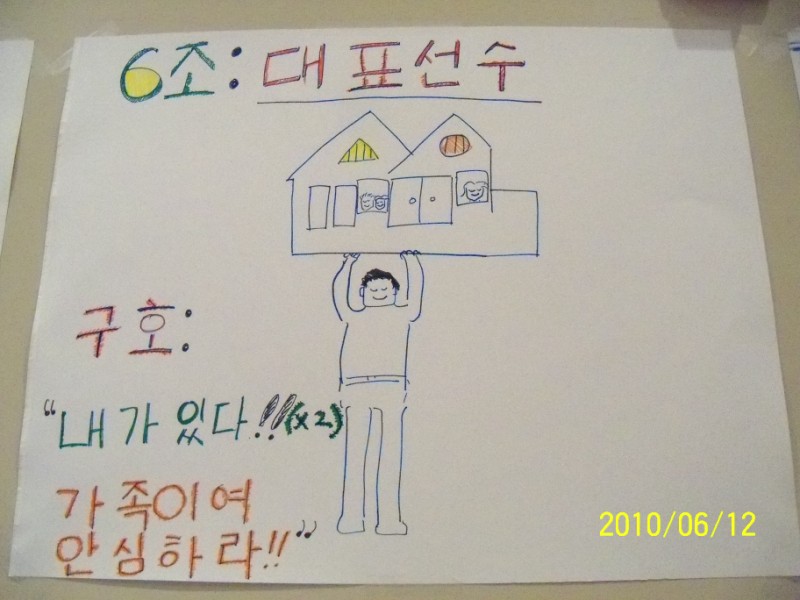 6조: 대표선수
구호:
“내가 있다!!(x2)
가족이여
안심하라!!”
2010/06/12